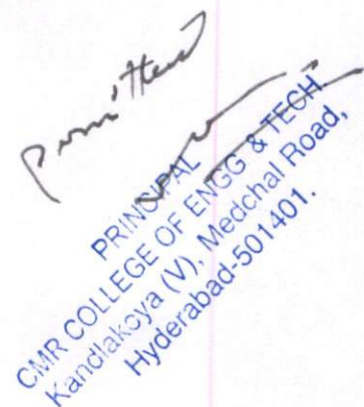 Permitted
PRINCIPAL
CMR COLLEGE OF ENGG & TECH
Kandlakoya (V), Medchal Road,
Hyderabad-501401.